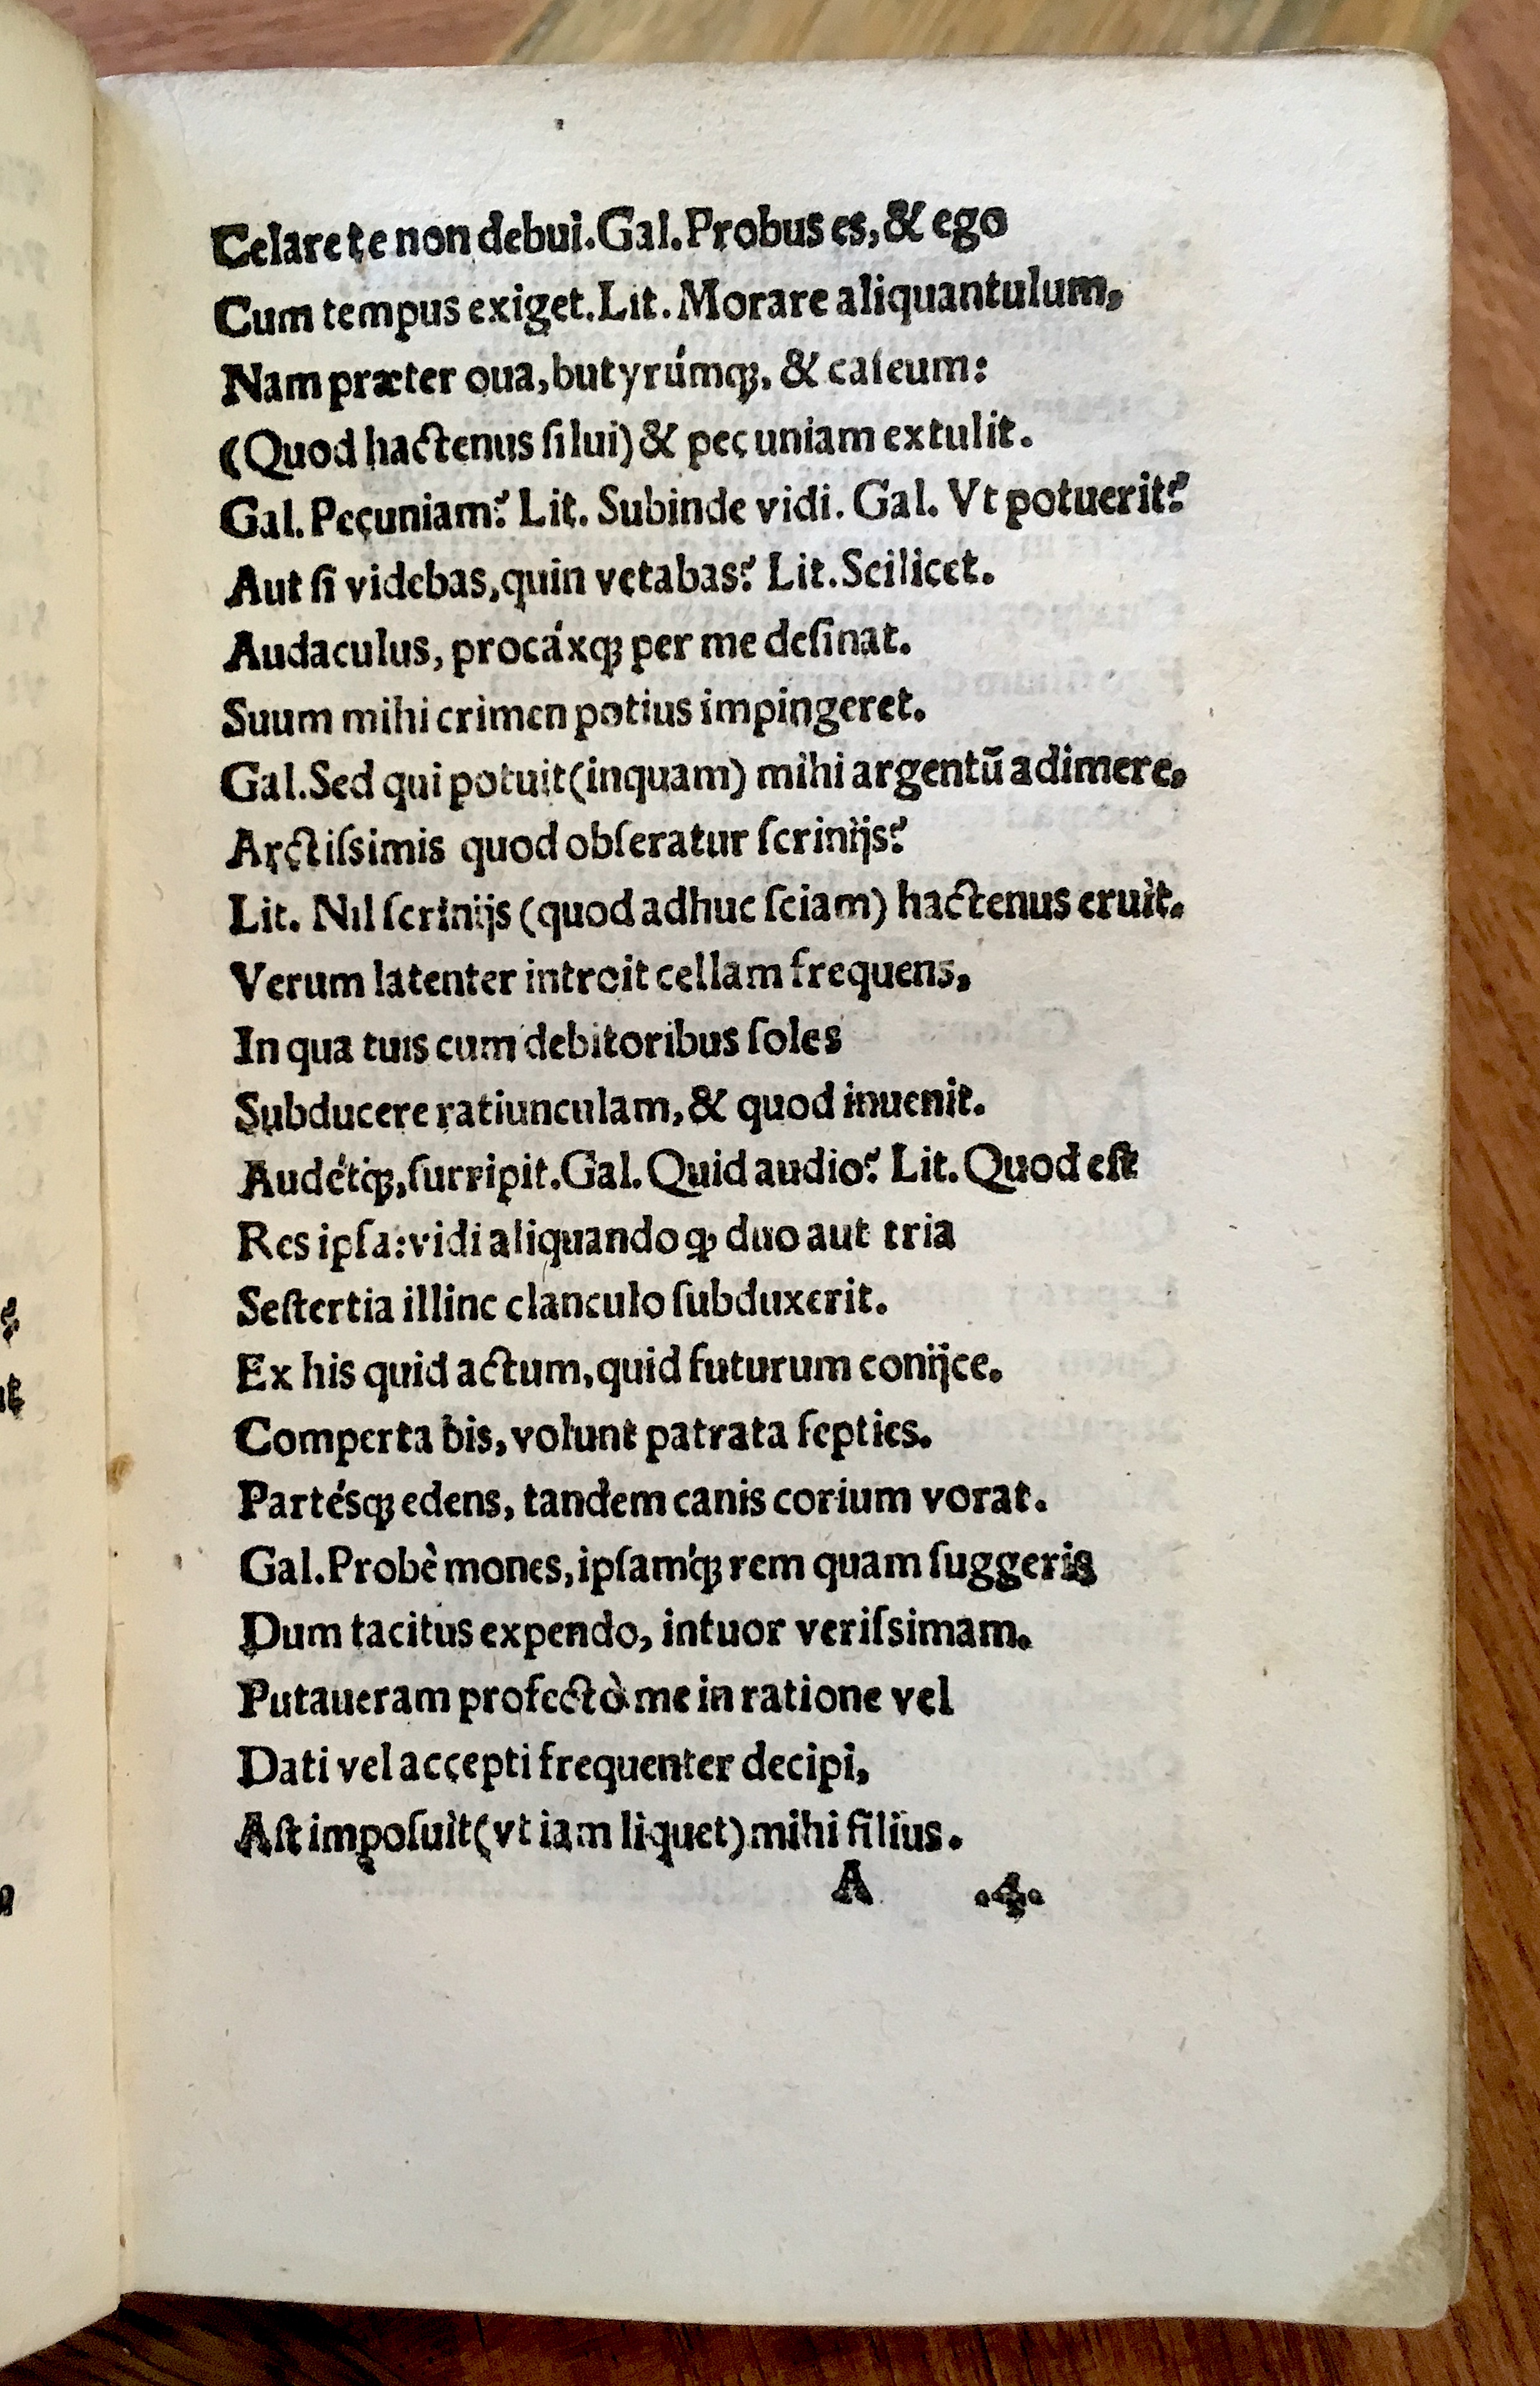 Celare te non debui. Gal. Probus es, & ego
Cum tempus exiget. Lit. Morare aliquantulum,
Nam præter oua, butyrúmq́;, & caſeum:
(Quod hactenus ſilui) & pecuniam extulit.
Gal. Pecuniam? Lit. Subinde vidi. Gal. Vt potuerit?
Aut ſi videbas, quin vetabas? Lit. Scilicet.
Audaculus, procáxq; per me deſinat.
Suum mihi crimen potius impingeret.
Gal. Sed qui potuit (inquam) mihi argentū adimere,
Arctiſsimis quod obſeratur ſcrinijs?
Lit. Nil ſcrinijs (quod adhuc ſciam) hactenus eruit.
Verum latenter introit cellam frequens,
In qua tuis cum debitoribus ſoles
Subducere ratiunculam, & quod inuenit.
Audétq;, ſurripit. Gal. Quid audio? Lit. Quod eſt
Res ipſa: vidi aliquando ꝙ duo aut tria
Seſtertia illinc clanculo ſubduxerit.
Ex his quid actum, quid futurum conijce.
Comperta bis, volunt patrata ſepties.
Partésq; edens, tandem canis corium vorat.
Gal. Probè mones, ipſamq́; rem quam ſuggeris
Dum tacitus expendo, intuor veriſsimam.
Putaueram profectò me in ratione vel
Dati vel accepti frequenter decipi,
Aſt impoſuit (vt iam liquet) mihi filius.
A .4.